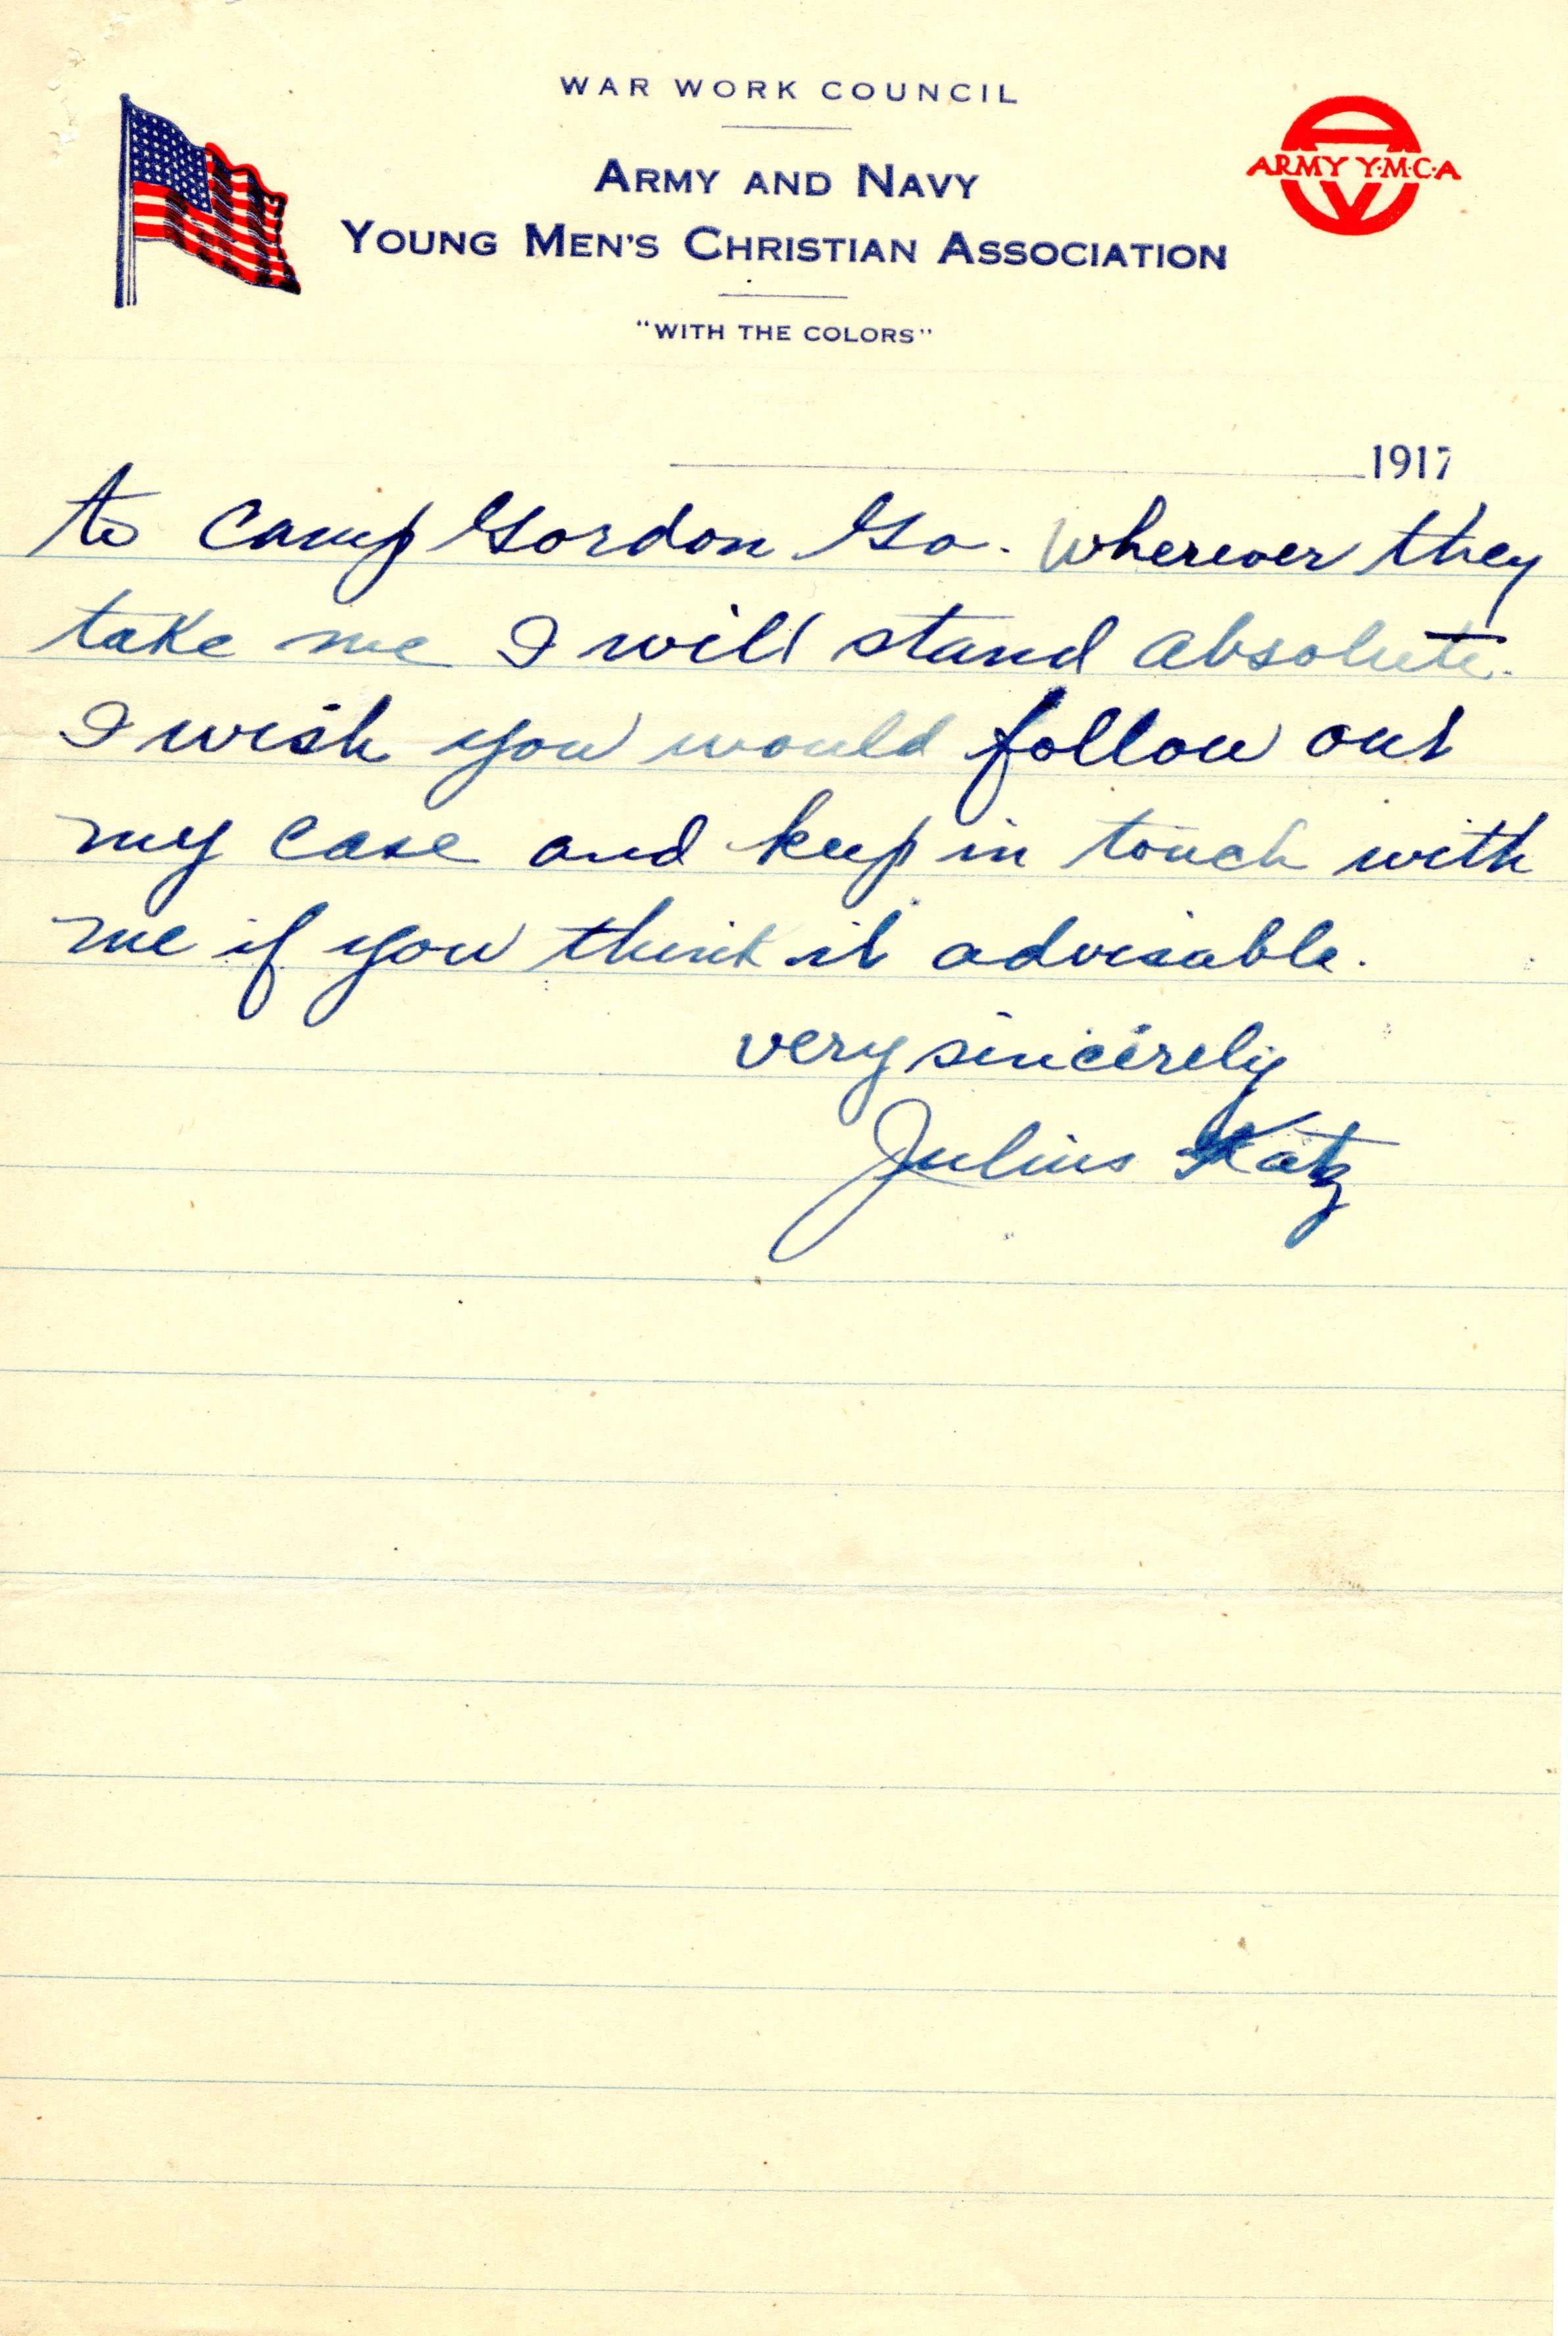 WAR WORK COUNCIL
ARMY AND NAVY
YOUNG MEN'S CHRISTIAN ASSOCIATION
"WITH THE COLORS"
ARMY Y·M·C·A
1917
to Camp Gordon Ga. Wherever they
take me I will stand absolute.
I wish you would follow out
my case and keep in touch with
me if you think it advisable.
very sincerely
Julius Katz